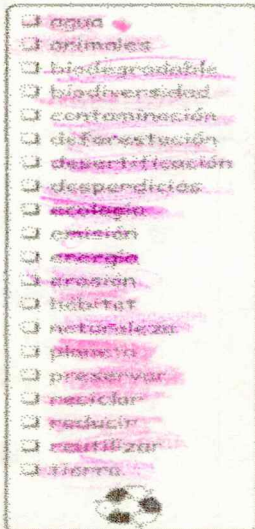 agua
animales
biodegradable
biodiversidad
contaminación
deforestación
desertificación
desperdicios
ecología
emisión
energía
erosión
hábitat
naturaleza
planeta
preservar
reciclar
reducir
reutilizar
tierra